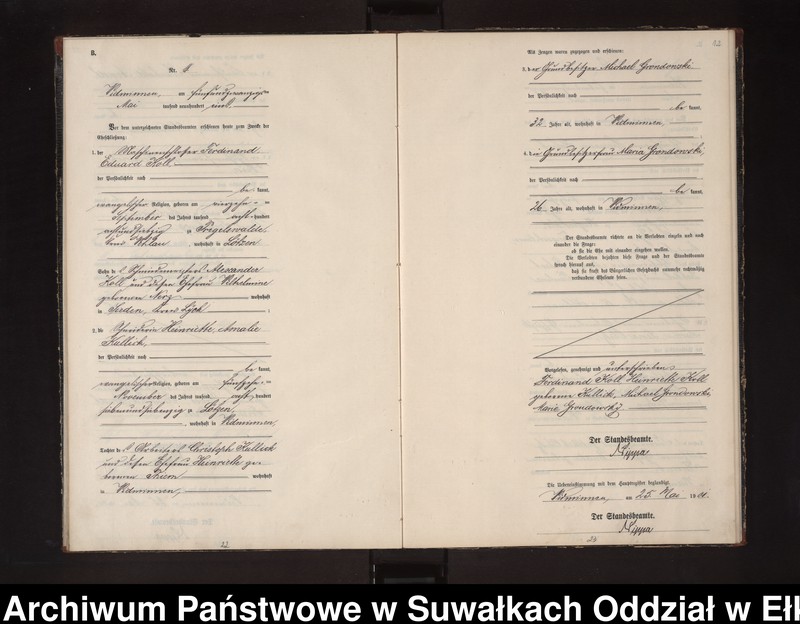 8.
Nr. 4
Widminnen, am fünfundzwanzigsten
Mai tausend neunhundert eins
Vor dem unterzeichneten Standesbeamten erschienen heute zum Zwecke der
Eheschließung:
1. der Maschinenschlosser Ferdinand
Eduard Koll
der Persönlichkeit nach
be kannt,
evangelischer Religion, geboren am vierzehnten
September des Jahres tausend acht hundert
achtundsiebzig in Poegelswalde
Kreis Wehlau, wohnhaft in Lötzen
Sohn des Schmiedemeisters Alexander
Koll und dessen Ehefrau Wilhelmine
geborenen wohnhaft
in Seeden, Kreis Lyck ;
2. die Schneiderin Heinriette, Amalie
Kullick,
der Persönlichkeit nach
be kannt,
evangelischer Religion, geboren am fünfzehnten
November des Jahres tausend acht hundert
siebenundsiebenzig in Lötzen
, wohnhaft in Widminnen,
Tochter des Arbeiters Christoph Kullick
und dessen Ehefrau Heinriette ge-
borenen wohnhaft
in Widminnen,
22
Als Zeugen waren zugezogen und erschienen:
3. der Grundbesitzer Michael Grondowski
der Persönlichkeit nach
be kannt,
32 Jahre alt, wohnhaft in Widminnen,
4. die Grundbesitzerfrau Maria Grondowski,
der Persönlichkeit nach
be kannt,
26 Jahre alt, wohnhaft in Widminnen,
Der Standesbeamte richtete an die Verlobten einzeln und nach
einander die Frage:
ob sie die Ehe mit einander eingehen wollen.
Die Verlobten bejahten diese Frage und der Standesbeamte
sprach hierauf aus,
daß sie kraft des Bürgerlichen Gesetzbuchs nunmehr rechtmäßig
verbundene Eheleute seien.
Vorgelesen, genehmigt und unterschrieben
Ferdinand Koll Heinriette Koll
geborene Kullick, Michael Grondowski
Marie Grondowsky
Der Standesbeamte.
Nippa
Die Uebereinstimmung mit dem Hauptregister beglaubigt.
Widminnen, am 25 Mai 1901.
Der Standesbeamte.
Nippa
23
Archiwum Państwowe w Suwałkach Oddział w Ełk